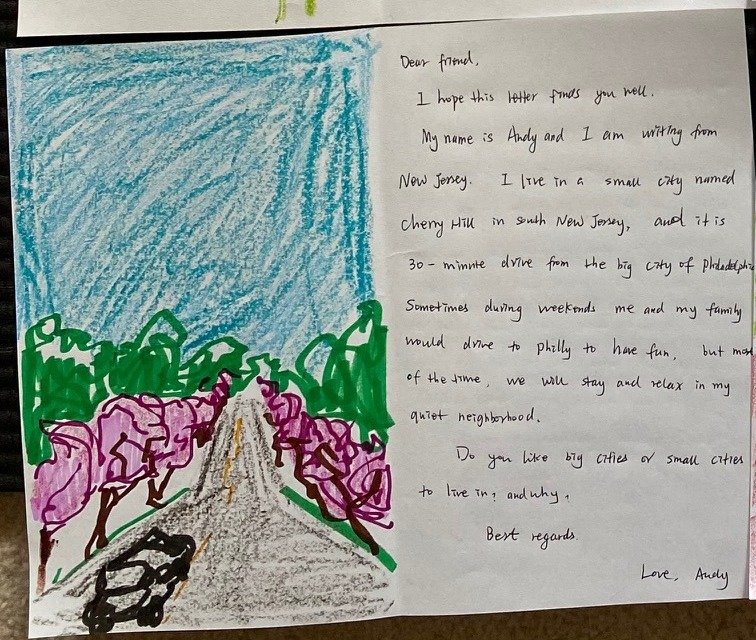 Dear friend,
I hope this letter finds you well.
My name is Andy and I am writing from
New Jersey. I live in a small city named
Cherry Hill in south New Jersey, and it is
30-minute drive from the big city of philadelphia
Sometimes during weekends me and my family
would drive to philly to have fun, but most
of the time, we will stay and relax in my
quiet neighborhood.
Do you like big cities or small cities
to live in? and why?
Best regards.
Love, Andy